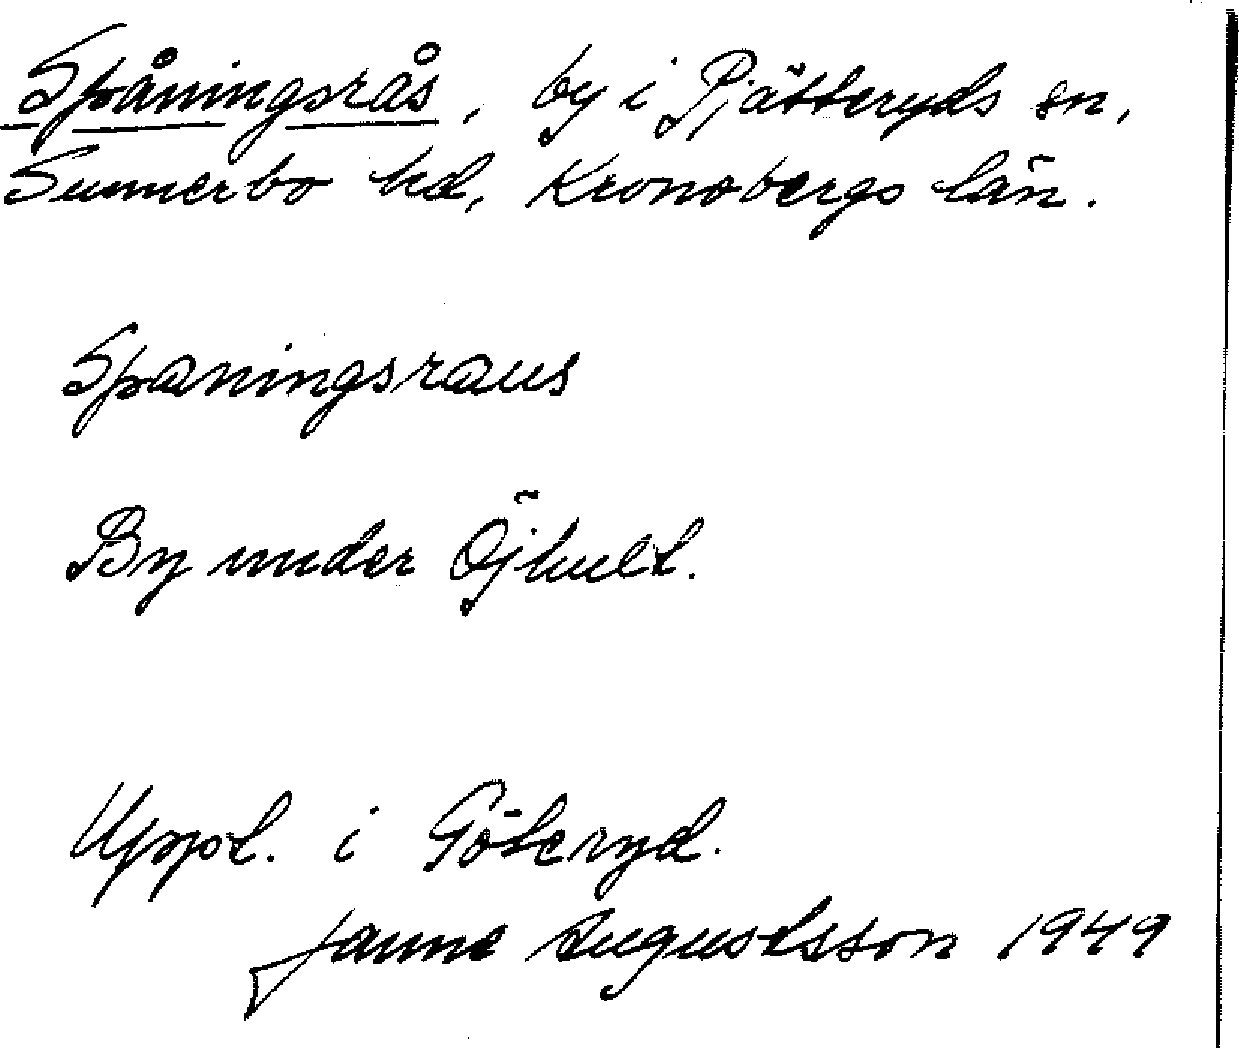 Spåningsrås, by i Pjätteryds sn,
Sunnerbo hd, Kronobergs län.
Spaningsraus
By under Öjhult.
Uppt. i Göteryd.
Janne Augustsson 1949